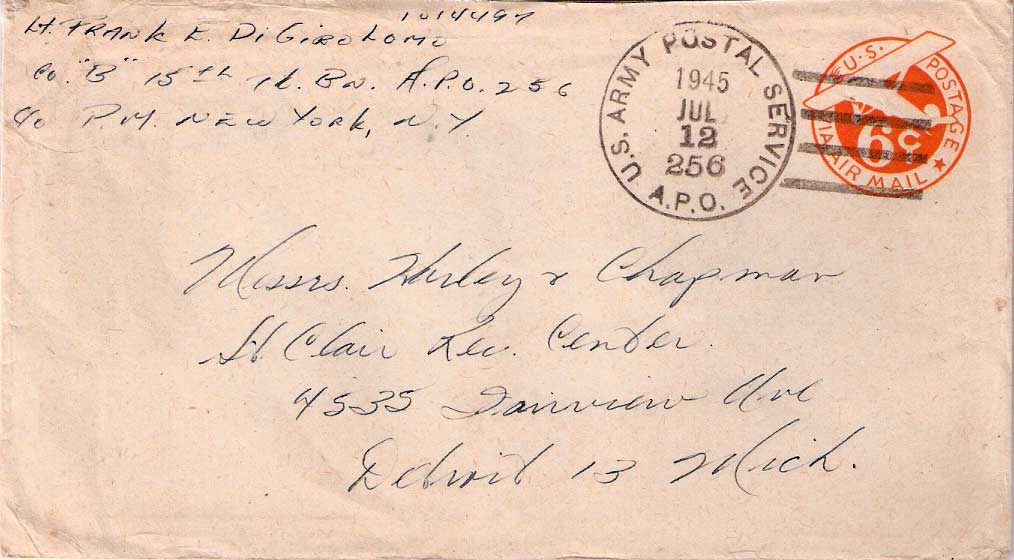 1014497
Lt. FRANK E. DiGIROLOMO
Co. "B" 15th Tk. Bn. A.P.O. 256
c/o P.M. NEW YORK, N.Y.
U.S. ARMY POSTAL SERVICE
1945
JUL
12
256
A.P.O.
U.S. POSTAGE
6¢
VIA AIR MAIL
Messrs. Hurley & Chapman
St Clair Rec. Center.
4535 Fairview Ave
Detroit 13 Mich.